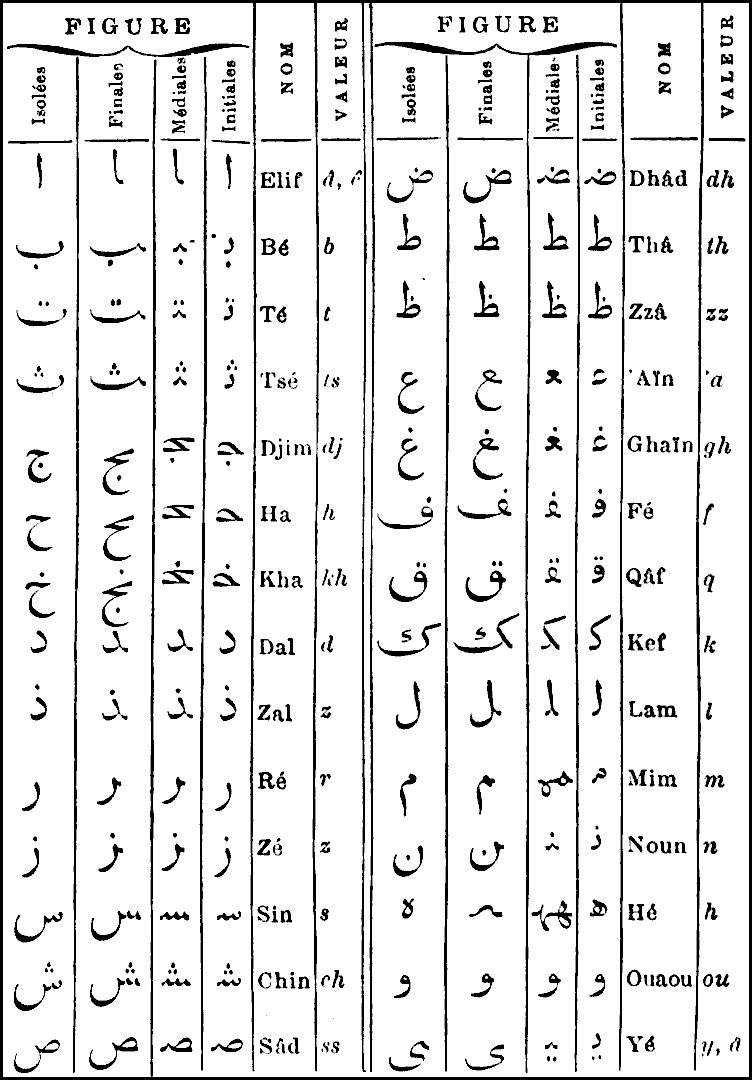 FIGURE
Isolées Finales Médiales Initiales NOM VALEUR
ا ـا ـا ا Elif
ب ـب ـبـ بـ Bé b
ت ـت ـتـ تـ Té t
ث ـث ـثـ ثـ Tsé ts
ج ـج ـجـ جـ Djim dj
ح ـح ـحـ حـ Ha h
خ ـخ ـخـ خـ Kha kh
د ـد ـد د Dal d
ذ ـذ ـذ ذ Zal z
ر ـر ـر ر Ré r
ز ـز ـز ز Zé z
س ـس ـسـ سـ Sin s
ش ـش ـشـ شـ Chin ch
ص ـص ـصـ صـ Sâd ss
FIGURE
Isolées Finales Médiale Initiales NOM VALEUR
ض ـض ـضـ ضـ Dhâd dh
ط ـط ـطـ طـ Thâ th
ظ ـظ ـظـ ظـ Zzâ zz
ع ـع ـعـ عـ 'Aïn 'a
غ ـغ ـغـ غـ Ghaïn gh
ف ـف ـفـ فـ Fé f
ق ـق ـقـ قـ Qâf q
ك ـك ـكـ كـ Kef k
ل ـل ـلـ لـ Lam l
م ـم ـمـ مـ Mim m
ن ـن ـنـ نـ Noun n
ه ـه ـهـ هـ Hé h
و ـو ـو و Ouaou ou
ى ـى ـيـ يـ Yé y,